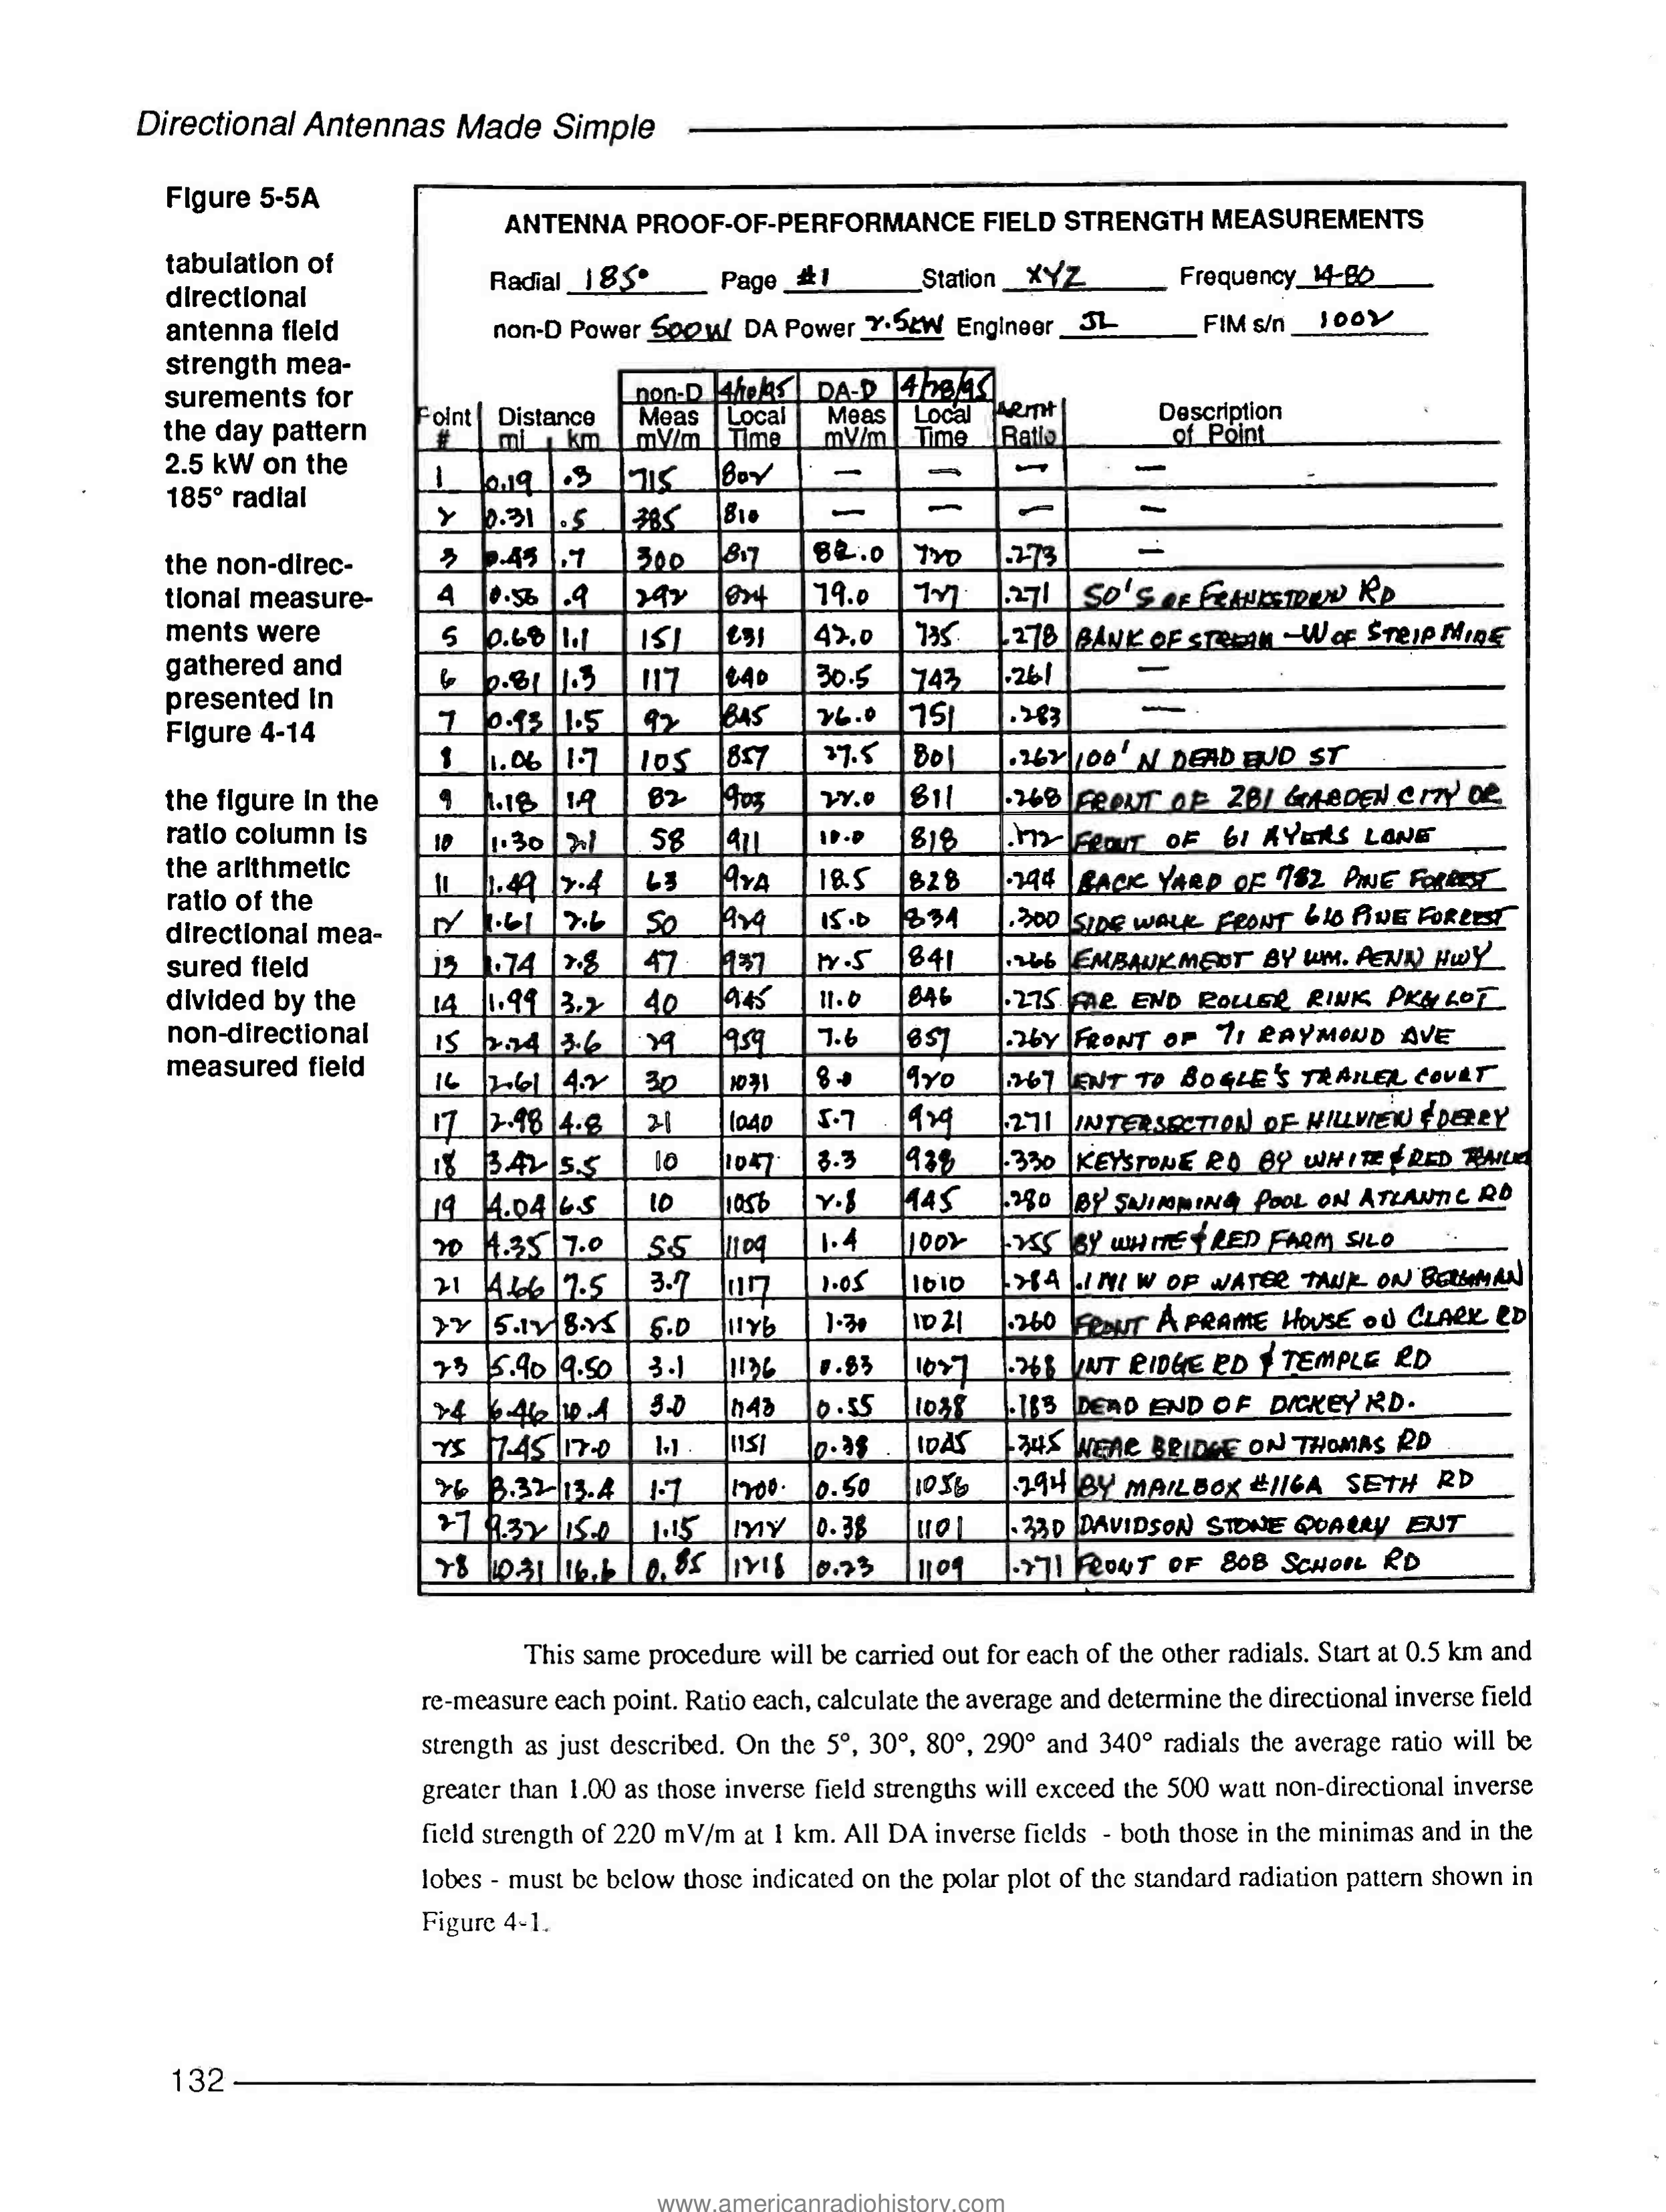 Directional Antennas Made Simple
Figure 5-5A
tabulation of
directional
antenna field
strength mea-
surements for
the day pattern
2.5 kW on the
185° radial
the non-direc-
tional measure-
ments were
gathered and
presented in
Figure 4-14
the figure in the
ratio column is
the arithmetic
ratio of the
directional mea-
sured field
divided by the
non-directional
measured field
ANTENNA PROOF-OF-PERFORMANCE FIELD STRENGTH MEASUREMENTS
Radial 185° Page #1 Station XYZ Frequency 14-80
non-D Power 500W DA Power 2.5kW Engineer JL FIM s/n 1002
non-D DA-D
Point Distance Meas Local Meas Local Description
# mi km mV/m Time mV/m Time Ratio of Point
1 0.19 .3 715 802 — — — —
2 0.31 .5 385 810 — — — —
3 0.43 .7 300 817 82.0 720 .273 —
4 0.56 .9 292 824 79.0 727 .271 50' S OF FRANKSTOWN RD
5 0.68 1.1 151 831 42.0 735 .278 BANK OF STREAM - W OF STRIP MINE
6 0.81 1.3 117 840 30.5 743 .261 —
7 0.93 1.5 92 845 26.0 751 .283 —
8 1.06 1.7 105 857 27.5 801 .262 100' N DEAD END ST
9 1.18 1.9 82 903 22.0 811 .268 FRONT OF 281 GARDEN CITY DR
10 1.30 2.1 58 911 10.0 818 .172 FRONT OF 61 AYERS LANE
11 1.49 2.4 63 924 18.5 828 .294 BACK YARD OF 782 PINE FORREST
12 1.61 2.6 50 929 15.0 834 .300 SIDE WALK FRONT 610 PINE FORREST
13 1.74 2.8 47 937 12.5 841 .266 EMBANKMENT BY WM. PENN HWY
14 1.99 3.2 40 945 11.0 846 .275 FAR END ROLLER RINK PKG LOT
15 2.24 3.6 29 959 7.6 857 .262 FRONT OF 71 RAYMOND AVE
16 2.61 4.2 30 1031 8.0 920 .267 ENT TO BOGLE'S TRAILER COURT
17 2.98 4.8 21 1040 5.7 929 .271 INTERSECTION OF HILLVIEW & DERRY
18 3.42 5.5 10 1047 3.3 938 .330 KEYSTONE RD BY WHITE & RED TRAILER
19 4.04 6.5 10 1056 2.8 945 .280 BY SWIMMING POOL ON ATLANTIC RD
20 4.35 7.0 5.5 1109 1.4 1002 .255 BY WHITE & RED FARM SILO
21 4.66 7.5 3.7 1117 1.05 1010 .284 .1 MI W OF WATER TANK ON BERGMAN
22 5.12 8.25 5.0 1126 1.30 1021 .260 FRONT A FRAME HOUSE ON CLARK RD
23 5.90 9.50 3.1 1136 0.83 1027 .268 INT RIDGE RD & TEMPLE RD
24 6.46 10.4 3.0 1143 0.55 1038 .183 DEAD END OF DICKEY RD.
25 7.45 12.0 1.1 1151 0.38 1045 .345 NEAR BRIDGE ON THOMAS RD
26 8.32 13.4 1.7 1200 0.50 1056 .294 BY MAILBOX #116A SETH RD
27 9.32 15.0 1.15 1212 0.38 1101 .330 DAVIDSON STONE QUARRY ENT
28 10.31 16.6 0.85 1218 0.23 1109 .271 FRONT OF 808 SCHOOL RD
This same procedure will be carried out for each of the other radials. Start at 0.5 km and
re-measure each point. Ratio each, calculate the average and determine the directional inverse field
strength as just described. On the 5°, 30°, 80°, 290° and 340° radials the average ratio will be
greater than 1.00 as those inverse field strengths will exceed the 500 watt non-directional inverse
field strength of 220 mV/m at 1 km. All DA inverse fields - both those in the minimas and in the
lobes - must be below those indicated on the polar plot of the standard radiation pattern shown in
Figure 4-1.
132
www.americanradiohistory.com